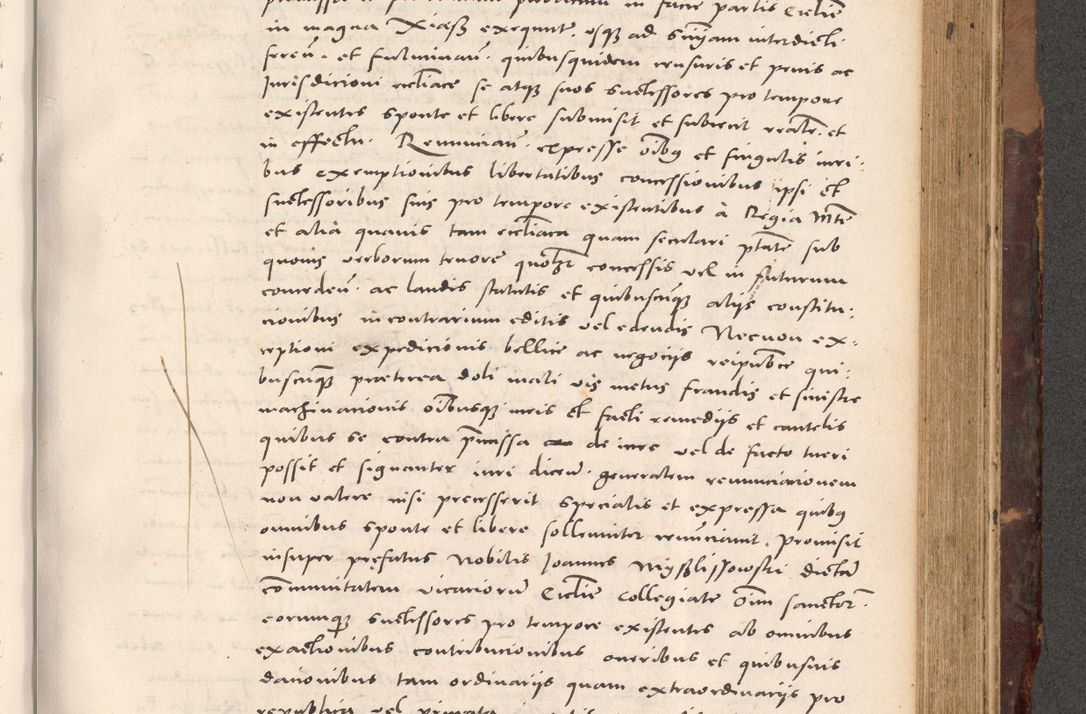 in magna exequunt. usq ad sniam interdicti
feren. et fulminan. quibusquidem censuris et penis ac
Jurisdicioni ecclіace se atq suos successores pro tempore
existentes sponte et libere submisit et subiecit realr. et
in effectu. Renuncian. expresse oibq et singulis iuri.
bus exemptionibus libertatibus concessionibus ipsi et
successoribus suis pro tempore existentibus à Regia Mte
et alià quavis tam ecclіaca quam seculari ptate sub
quovis verborum tenore quolr concessis vel in futurum
conceden. ac laudis statutis et quibuscuq alijs constitu.
cionibus incontrarium editis vel edendis Necnon ex.
ceptioni expedicionis bellice ac negocijs reipubce qui.
buscuq preterea doli mali vis metus fraudis et sinistre
machinacionis oibusq iuris et facti remedijs et cautelis
quibus se contra pmissa de iure vel de facto tueri
possit et signanter iuri dicen. generalem renunciacionem
non valere nisi precesserit specialis et expressa quibq
omnibus sponte et libere sollemniter renunciavit. Promisit
insuper prefatus Nobilis Joannes Myßlissowski dictã
communitatem vicariorũ Ecclie Collegiate Oim sanctor.
eorumq successores pro tempore existentes ab omnibus
exactionibus contribucionibus oneribus et quibusvis
dacionibus tam ordinarijs quam extraordinarijs pro